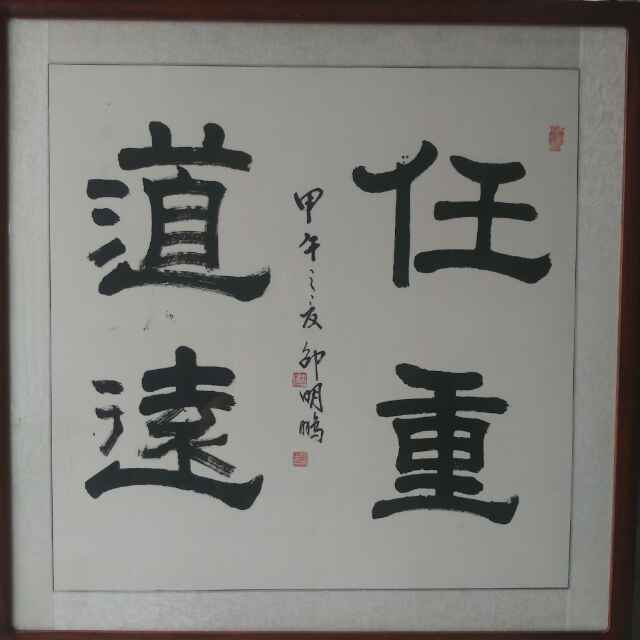 任重
道遠
甲午之夏邵明鹏